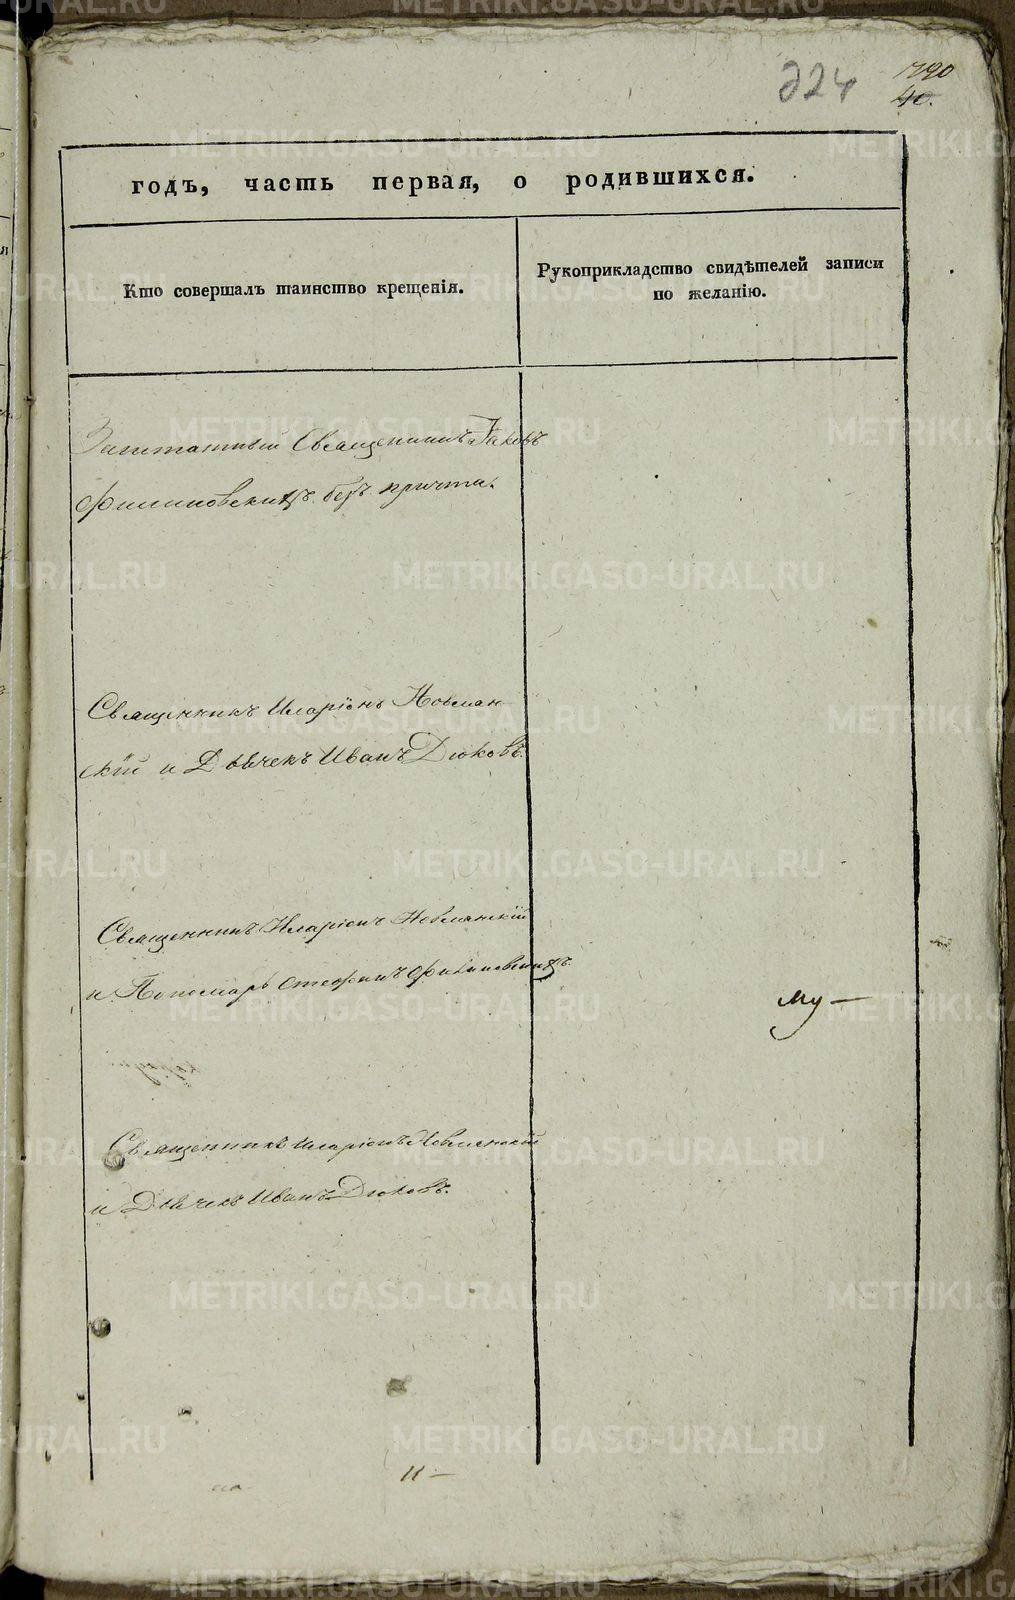 224
790
40.
годъ, часть первая, о родившихся.
Кто совершалъ таинство крещенія.
Рукоприкладство свидѣтелей записи
по желанію.
Заштатный Священникъ Іаковъ
Филиповскихъ безъ причта.
Священникъ Иларіонъ Новлян-
скій и Дьячекъ Иванъ Дюковъ.
Священникъ Иларіонъ Новлянскій
и Пономарь Стефанъ Филиповскихъ
му —
Священникъ Иларіонъ Новлянскій
и Дьячекъ Иванъ Дюковъ.
11 —
METRIKI.GASO-URAL.RU